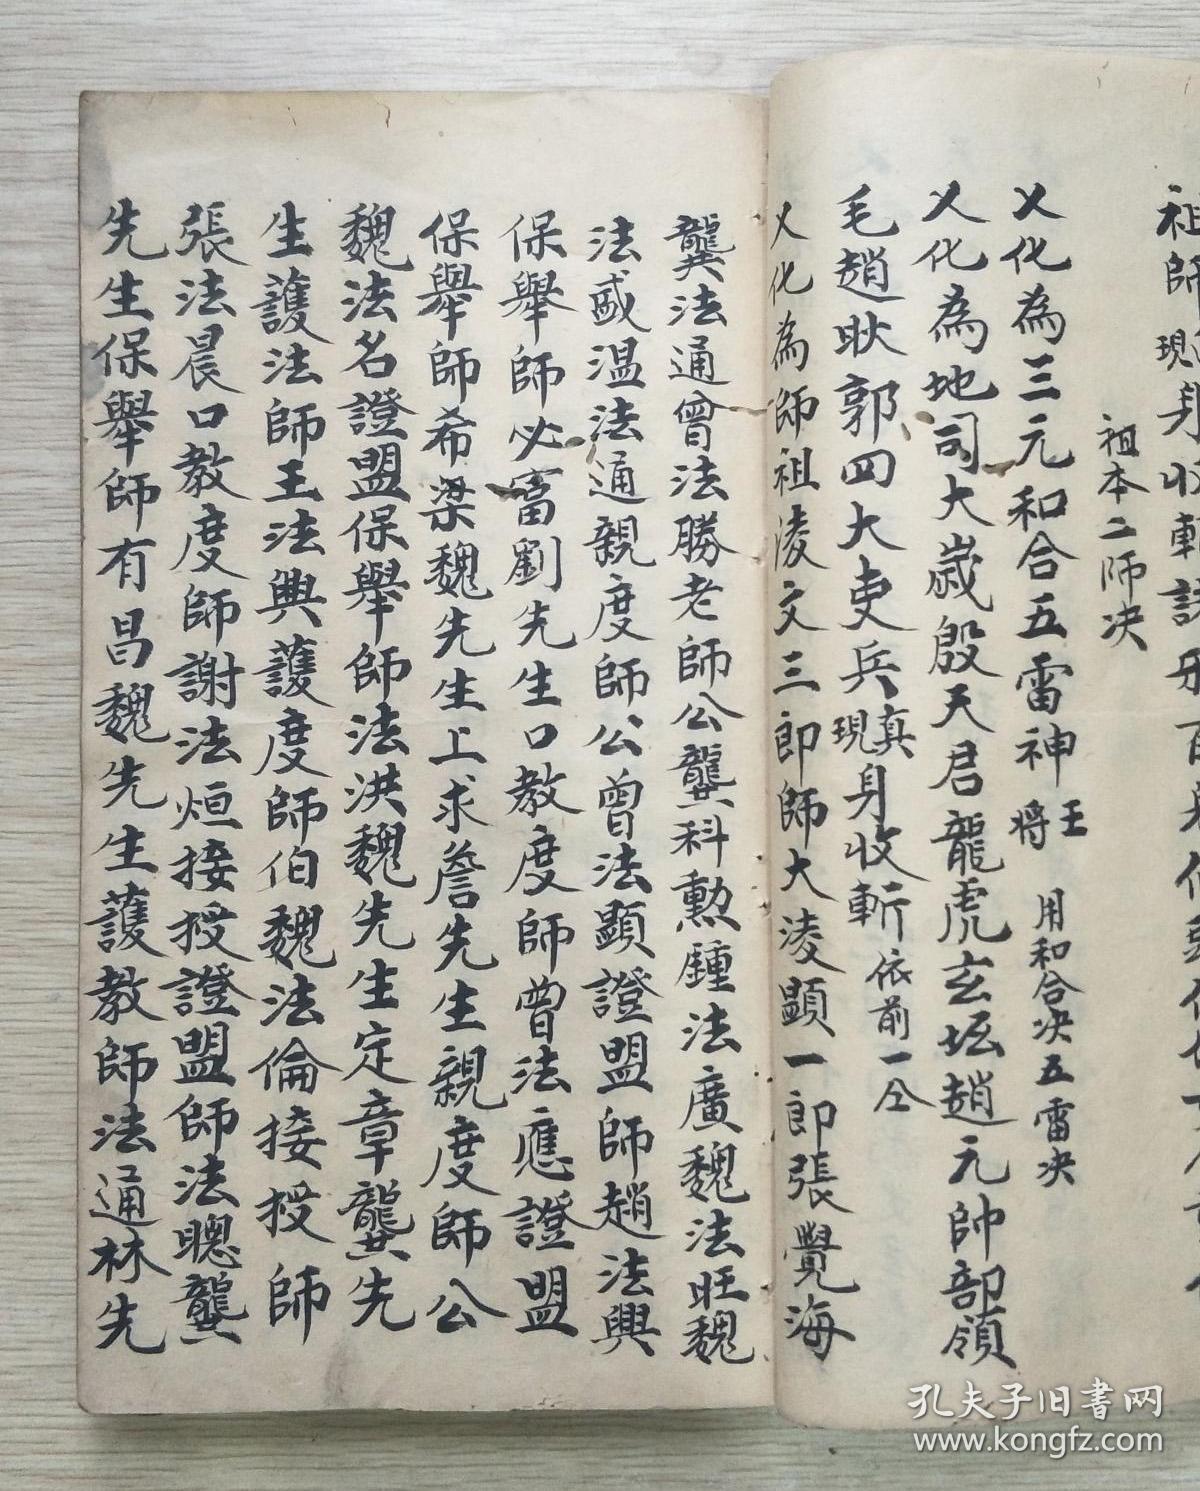 祖師現身收斬
祖本二師决
乂化為三元和合五雷神王將 用和合决五雷决
乂化為地司大歲殷天君龍虎玄坛趙元帥部領
毛趙耿郭四大吏兵真現身收斬依前一仝
乂化為師祖淩文三郎師大淩顕一郎張覺海
龔法通曾法勝老師公龔科勲鍾法廣魏法旺魏
法威温法通親度師公曾法顕證盟師趙法興
保舉師必富劉先生口教度師曾法應證盟
保舉師希梁魏先生上求詹先生親度師公
魏法名證盟保舉師法洪魏先生定章龔先
生護法師王法興護度師伯魏法倫接授師
張法晨口教度師謝法烜接授證盟師法聰龔
先生保舉師有昌魏先生護教師法通林先
孔夫子旧书网
www.kongfz.com